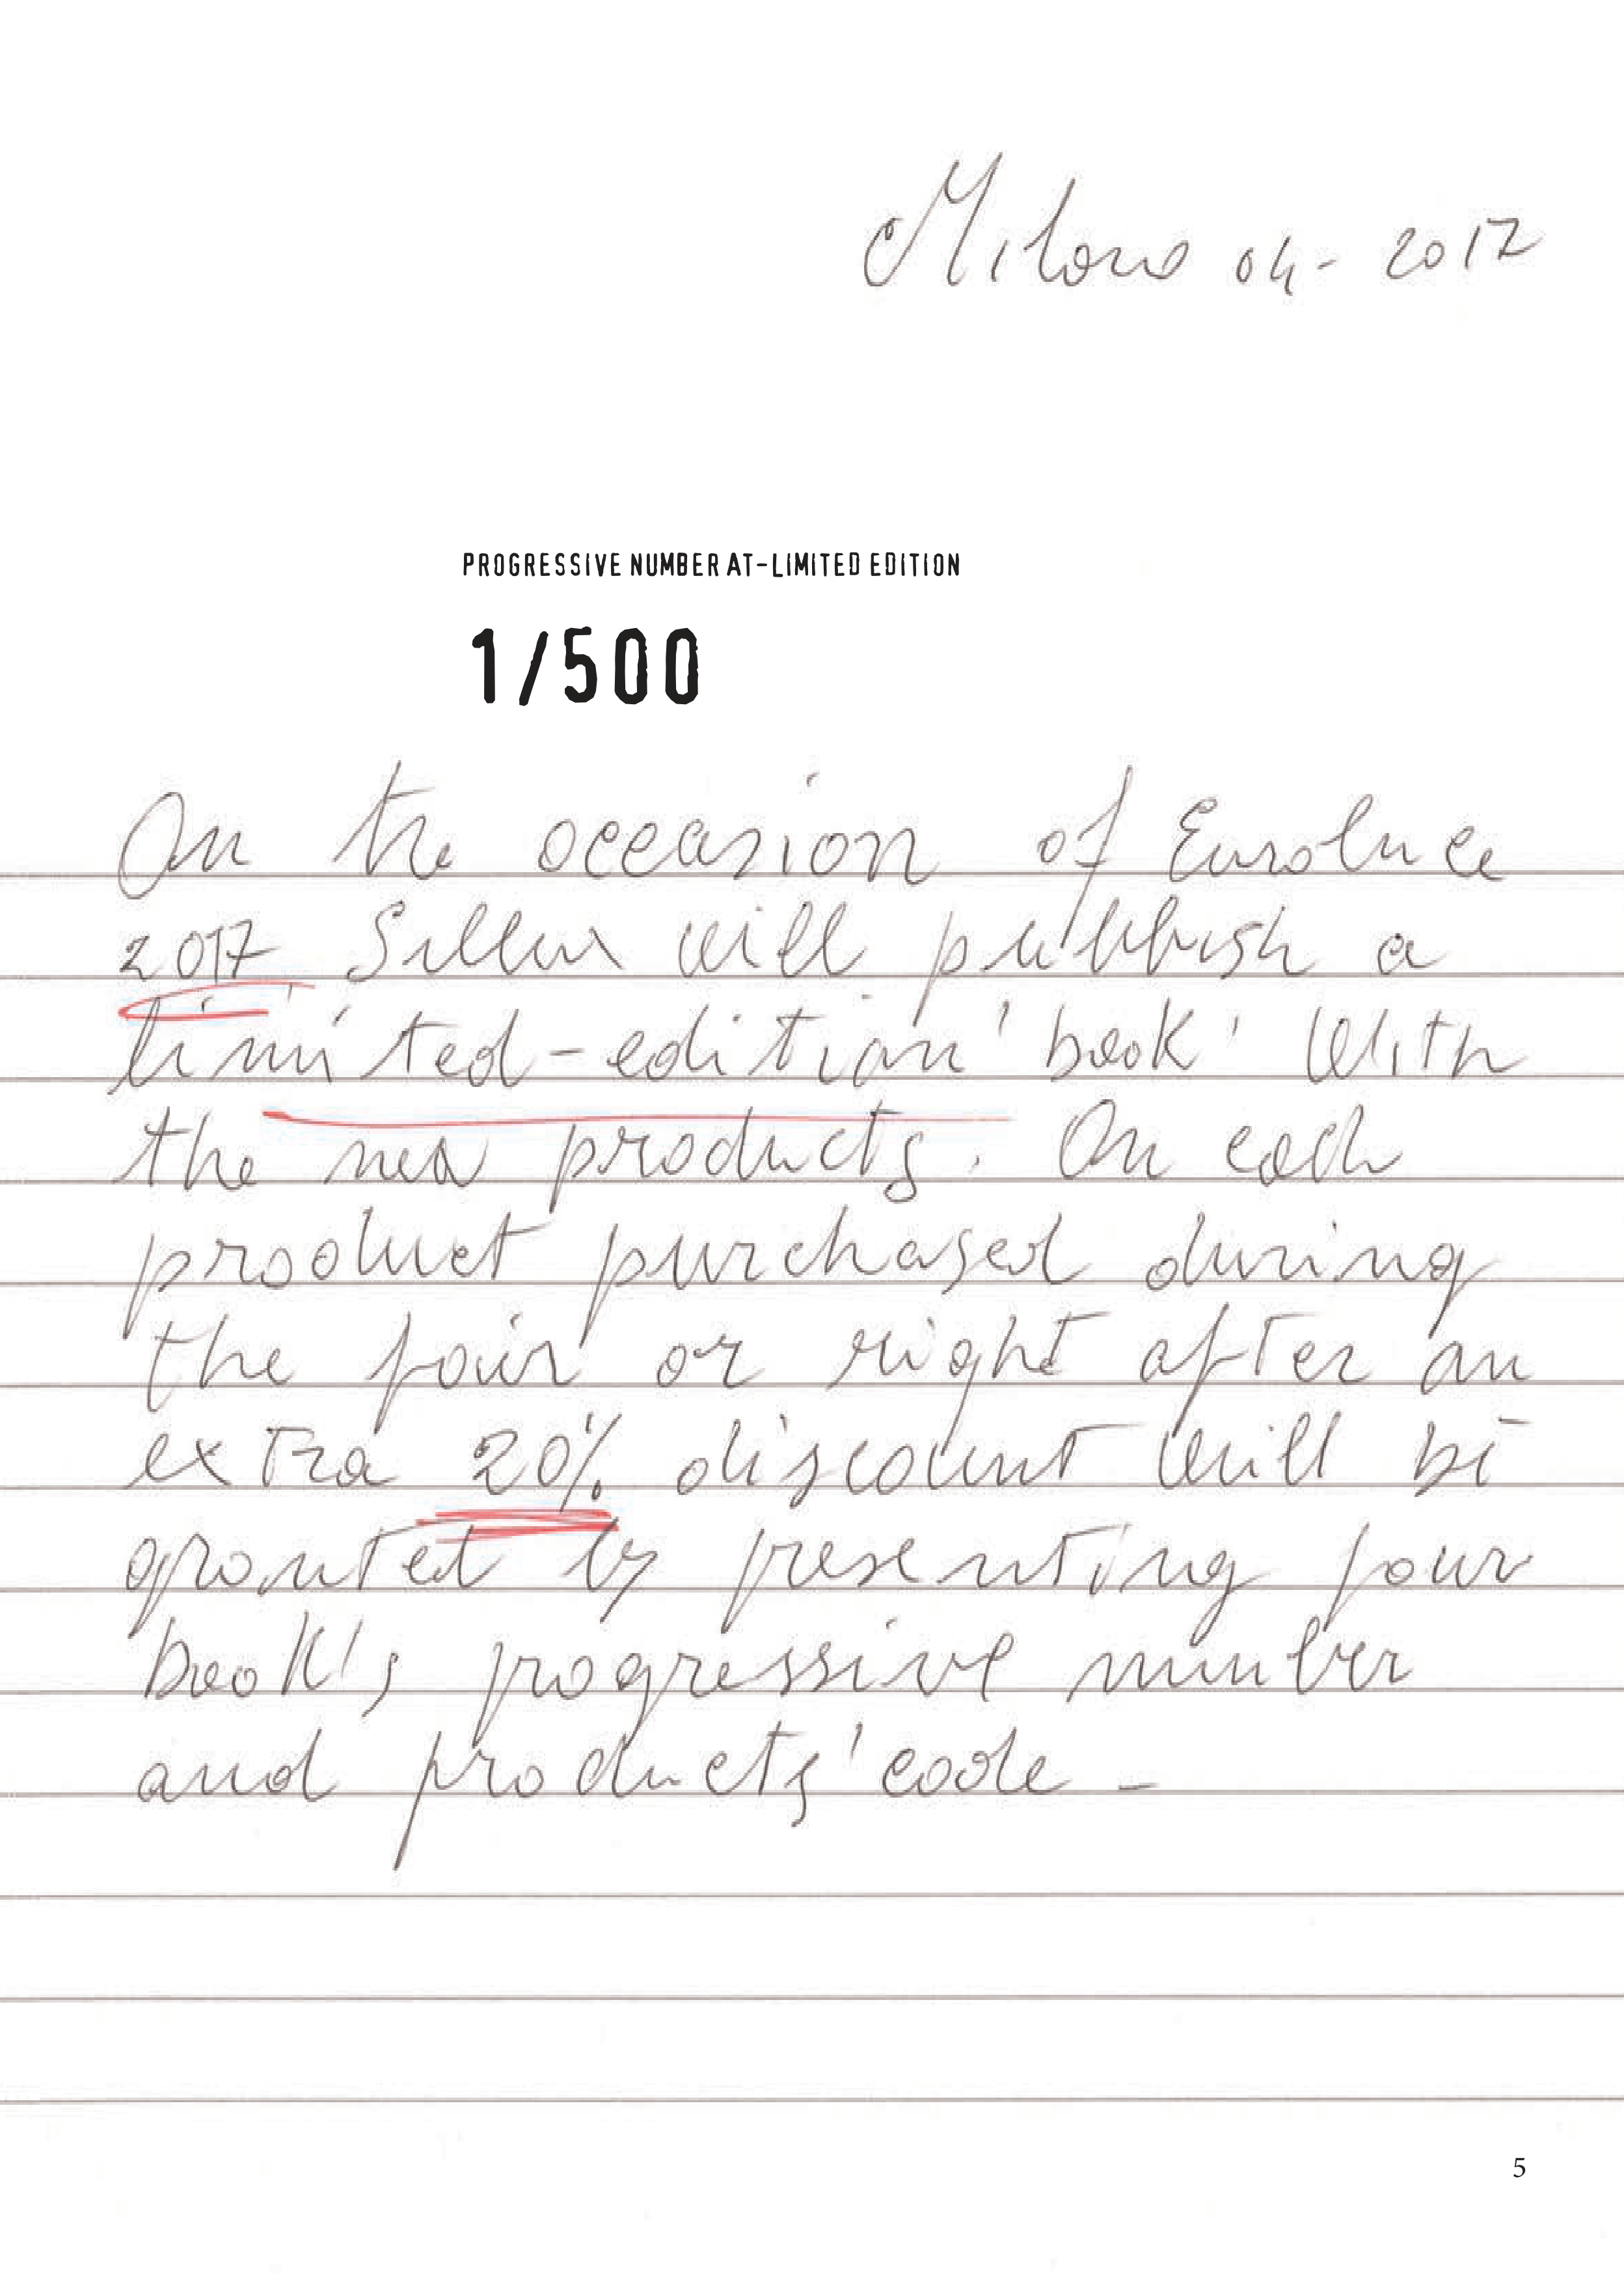 Milano 04-2017
PROGRESSIVE NUMBER AT-LIMITED EDITION
1/500
On the occasion of Euroluce
2017 Sillux will publish a
limited-edition 'book' With
the new products. On each
product purchased during
the fair or right after an
extra 20% discount will be
granted by presenting your
book's progressive number
and products' code -
5